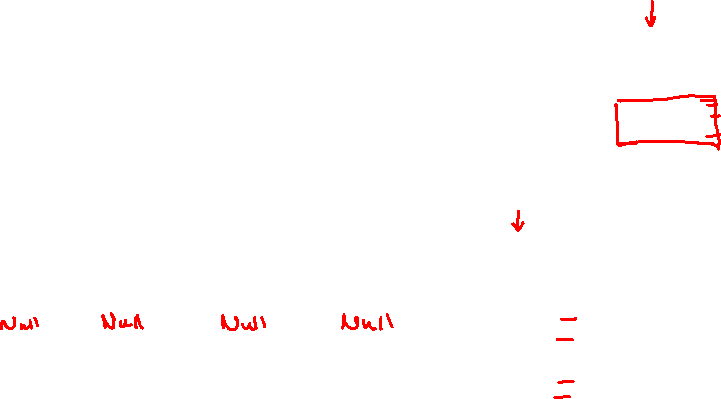 Null Null Null Null